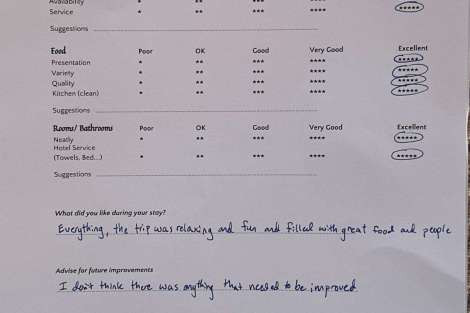 Availability * ** *** ****
Service * ** *** **** *****
Suggestions
Food Poor OK Good Very Good Excellent
Presentation * ** *** **** *****
Variety * ** *** **** *****
Quality * ** *** **** *****
Kitchen (clean) * ** *** **** *****
Suggestions
Rooms/ Bathrooms Poor OK Good Very Good Excellent
Neatly * ** *** **** *****
Hotel Service
(Towels, Bed...) * ** *** **** *****
Suggestions
What did you like during your stay?
Everything, the trip was relaxing and fun and filled with great food and people
Advise for future improvements
I don't think there was anything that needed to be improved